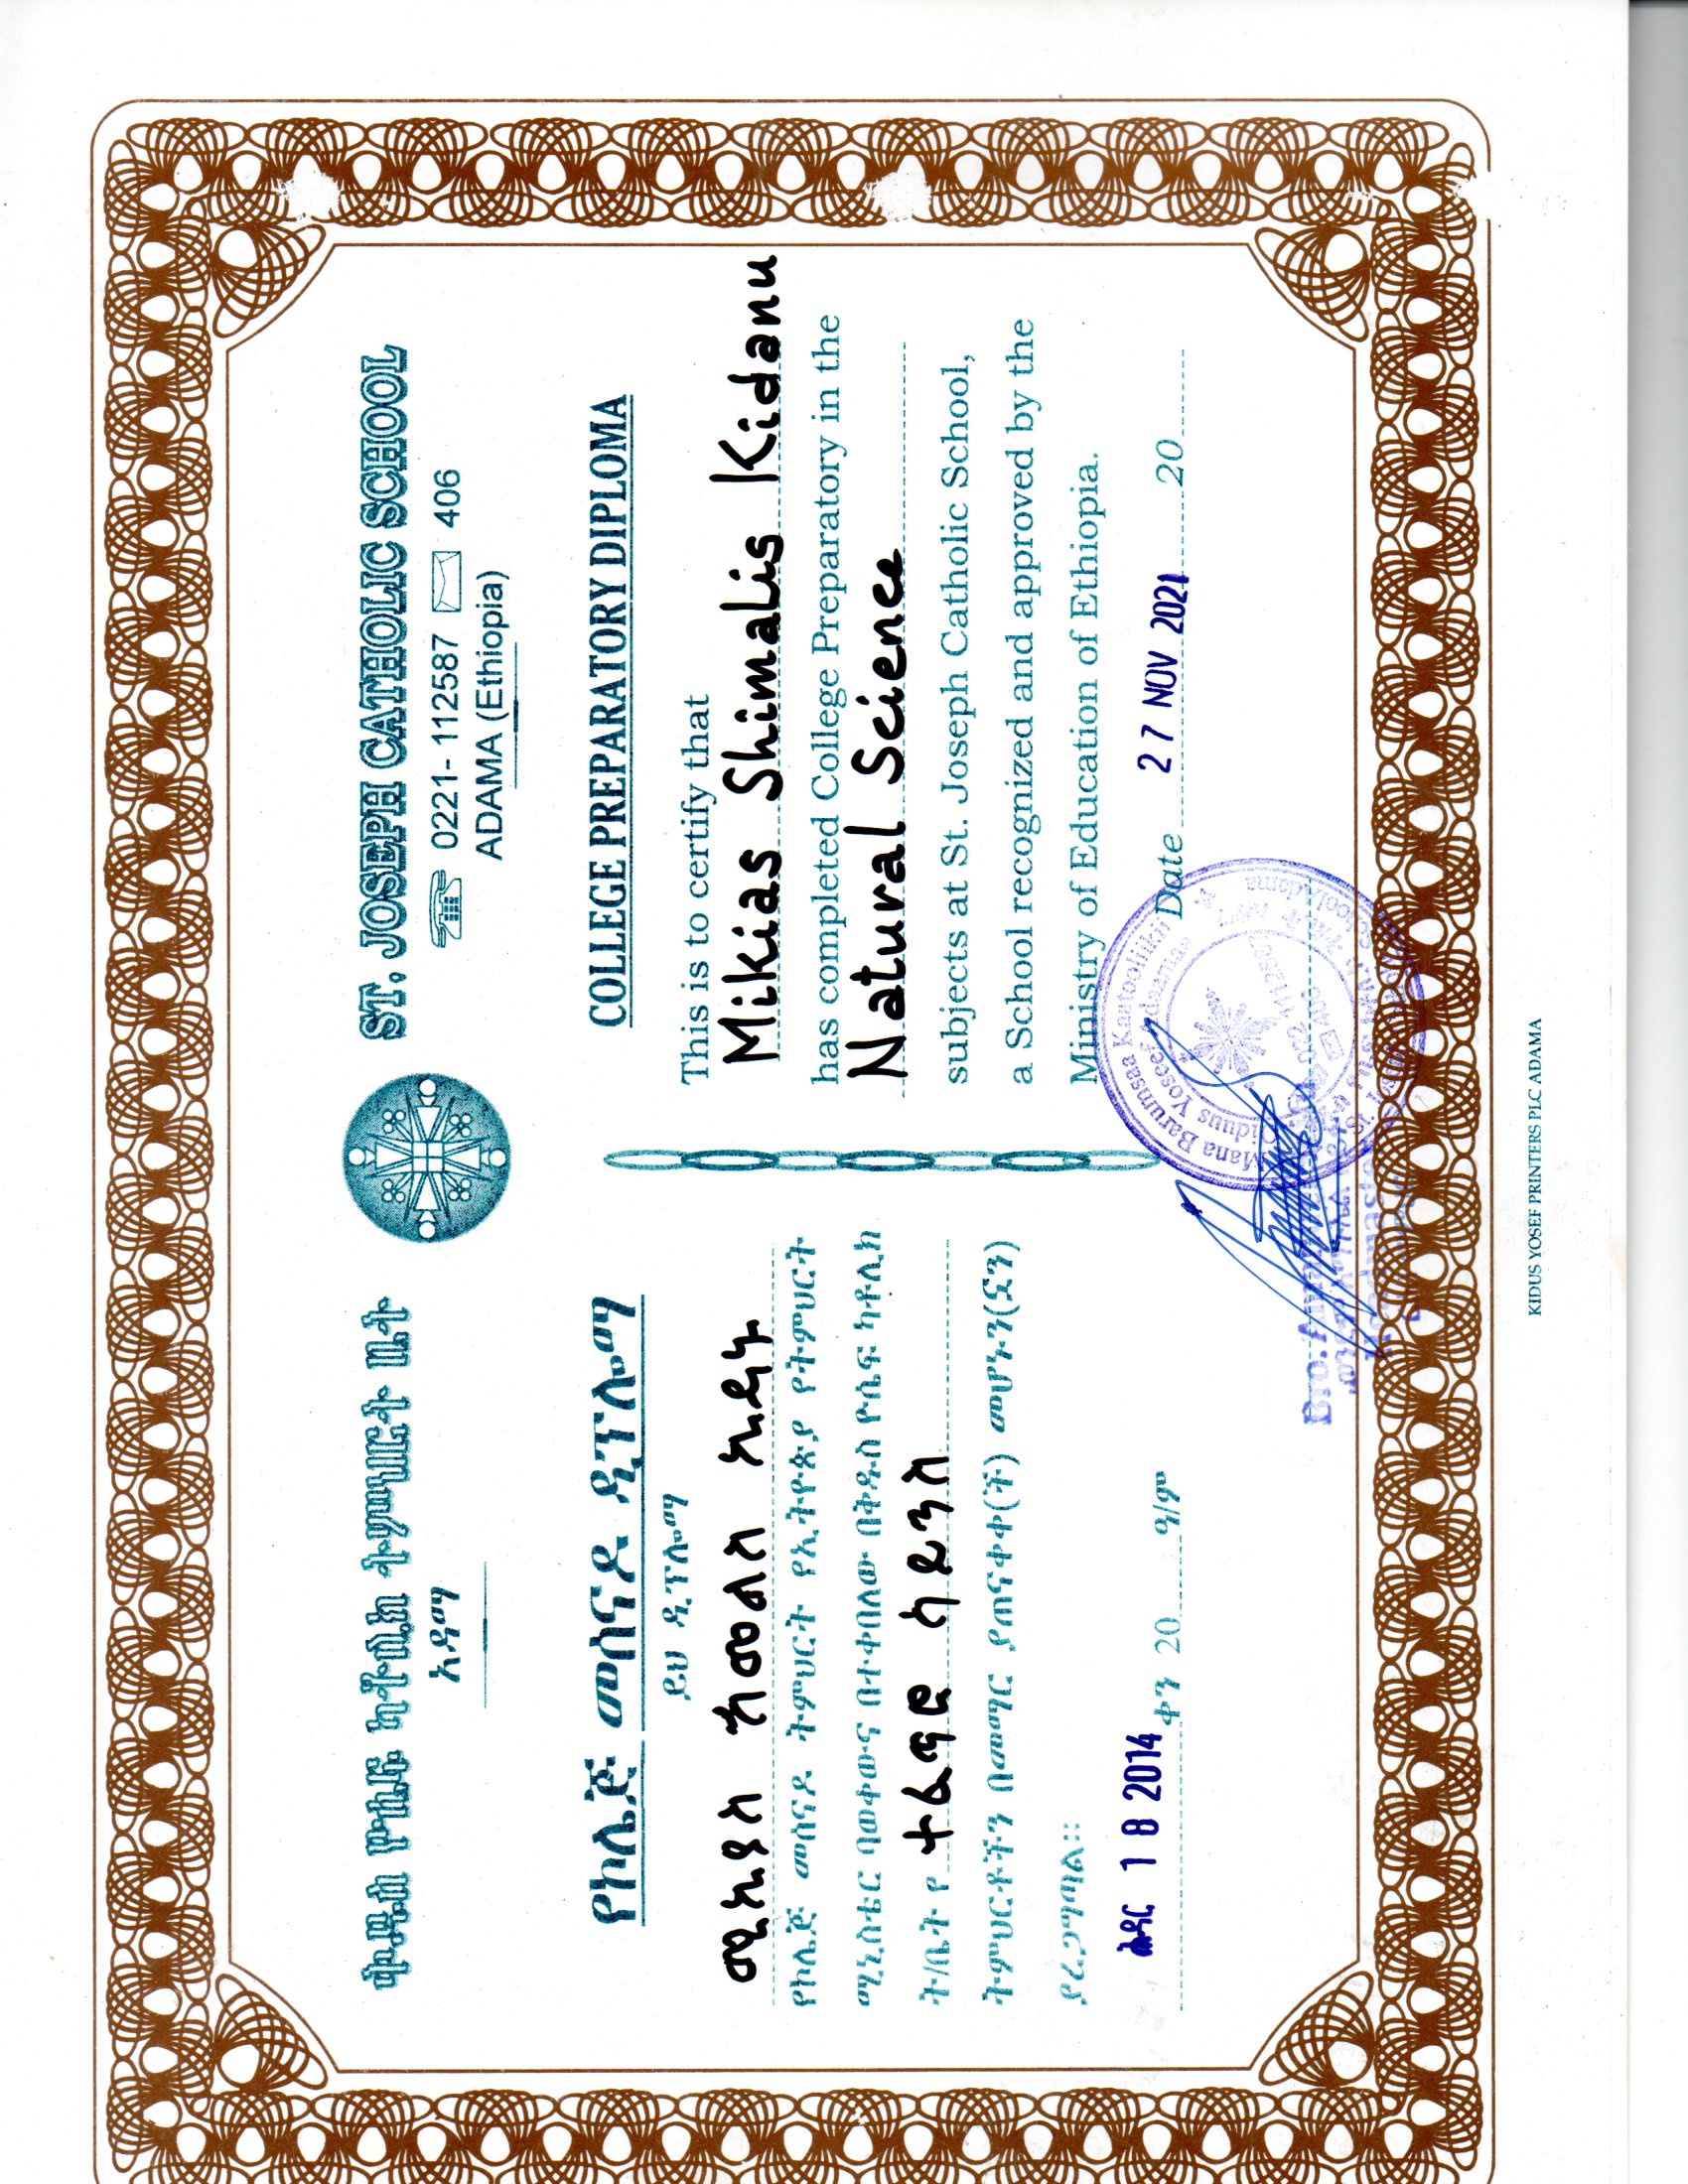 ቅዱስ ዮሴፍ ካቶሊክ ትምህርት ቤት
አዳማ
የኮሌጅ መሰናዶ ዲፕሎማ
ይህ ዲፕሎማ
ሚኪያስ ሽመልስ ኪዳኑ
የኮሌጅ መሰናዶ ትምህርት የኢትዮጵያ የትምህርት
ሚኒስቴር ባወቀውና በተቀበለው በቅዱስ ዮሴፍ ካቶሊክ
ት/ቤት የ ተፈጥሮ ሳይንስ
ትምህርቶችን በመማር ያጠናቀቀ(ች) መሆኑን(ኗን)
ያረጋግጣል።
ኅዳር 18 2014 ቀን 20 ዓ/ም
ST. JOSEPH CATHOLIC SCHOOL
0221-112587 406
ADAMA (Ethiopia)
COLLEGE PREPARATORY DIPLOMA
This is to certify that
Mikias Shimalis Kidanu
has completed College Preparatory in the
Natural Science
subjects at St. Joseph Catholic School,
a School recognized and approved by the
Ministry of Education of Ethiopia.
Date 27 NOV 2021 20
Mana Barumsaa Kaatoolikii
Qiduus Yoseef Adaamaa
KIDUS YOSEF PRINTERS PLC ADAMA